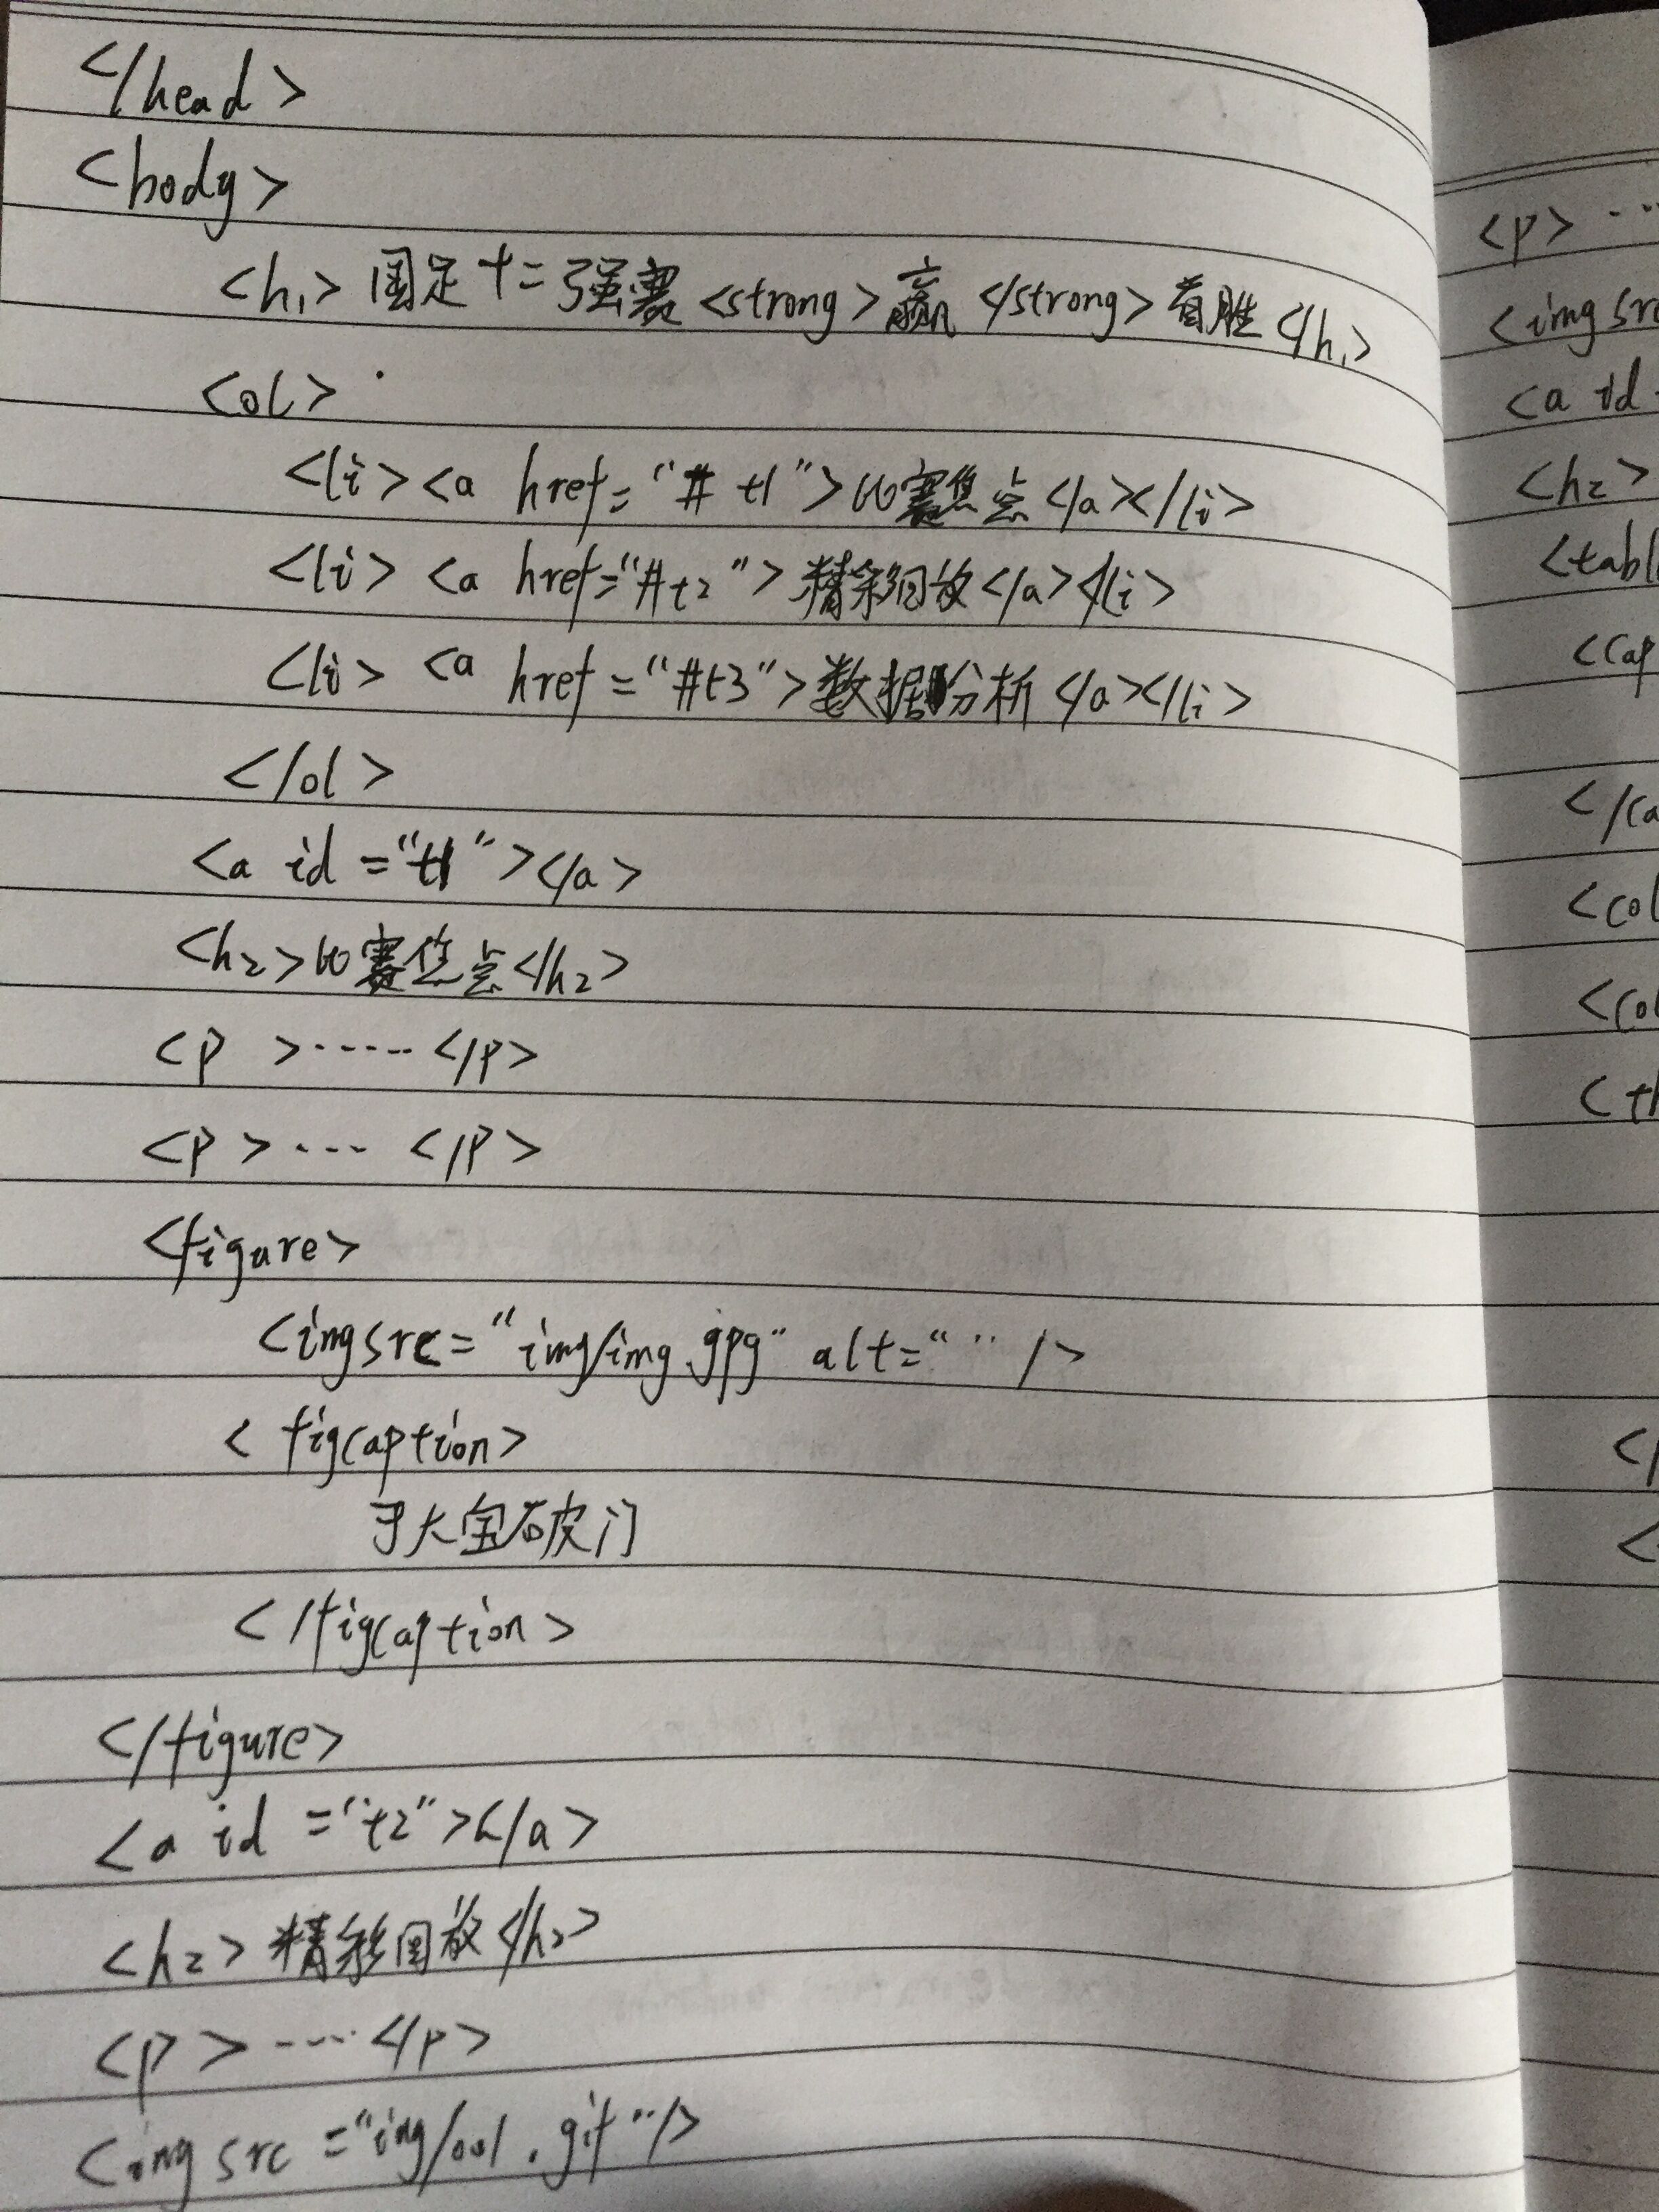 </head>
<body>
<h1>国足十二强赛<strong>赢</strong>首胜</h1>
<ol>
<li><a href="#t1">比赛焦点</a></li>
<li><a href="#t2">精彩回放</a></li>
<li><a href="#t3">数据分析</a></li>
</ol>
<a id="t1"></a>
<h2>比赛焦点</h2>
<p>······</p>
<p>····</p>
<figure>
<img src="img/img.gpg" alt=""/>
<figcaption>
于大宝破门
</figcaption>
</figure>
<a id="t2"></a>
<h2>精彩回放</h2>
<p>·····</p>
<img src="img/001.gif"/>
<p>···
<img src
<a id
<h2>
<tabl
<cap
</ca
<col
<col
<th
</
<